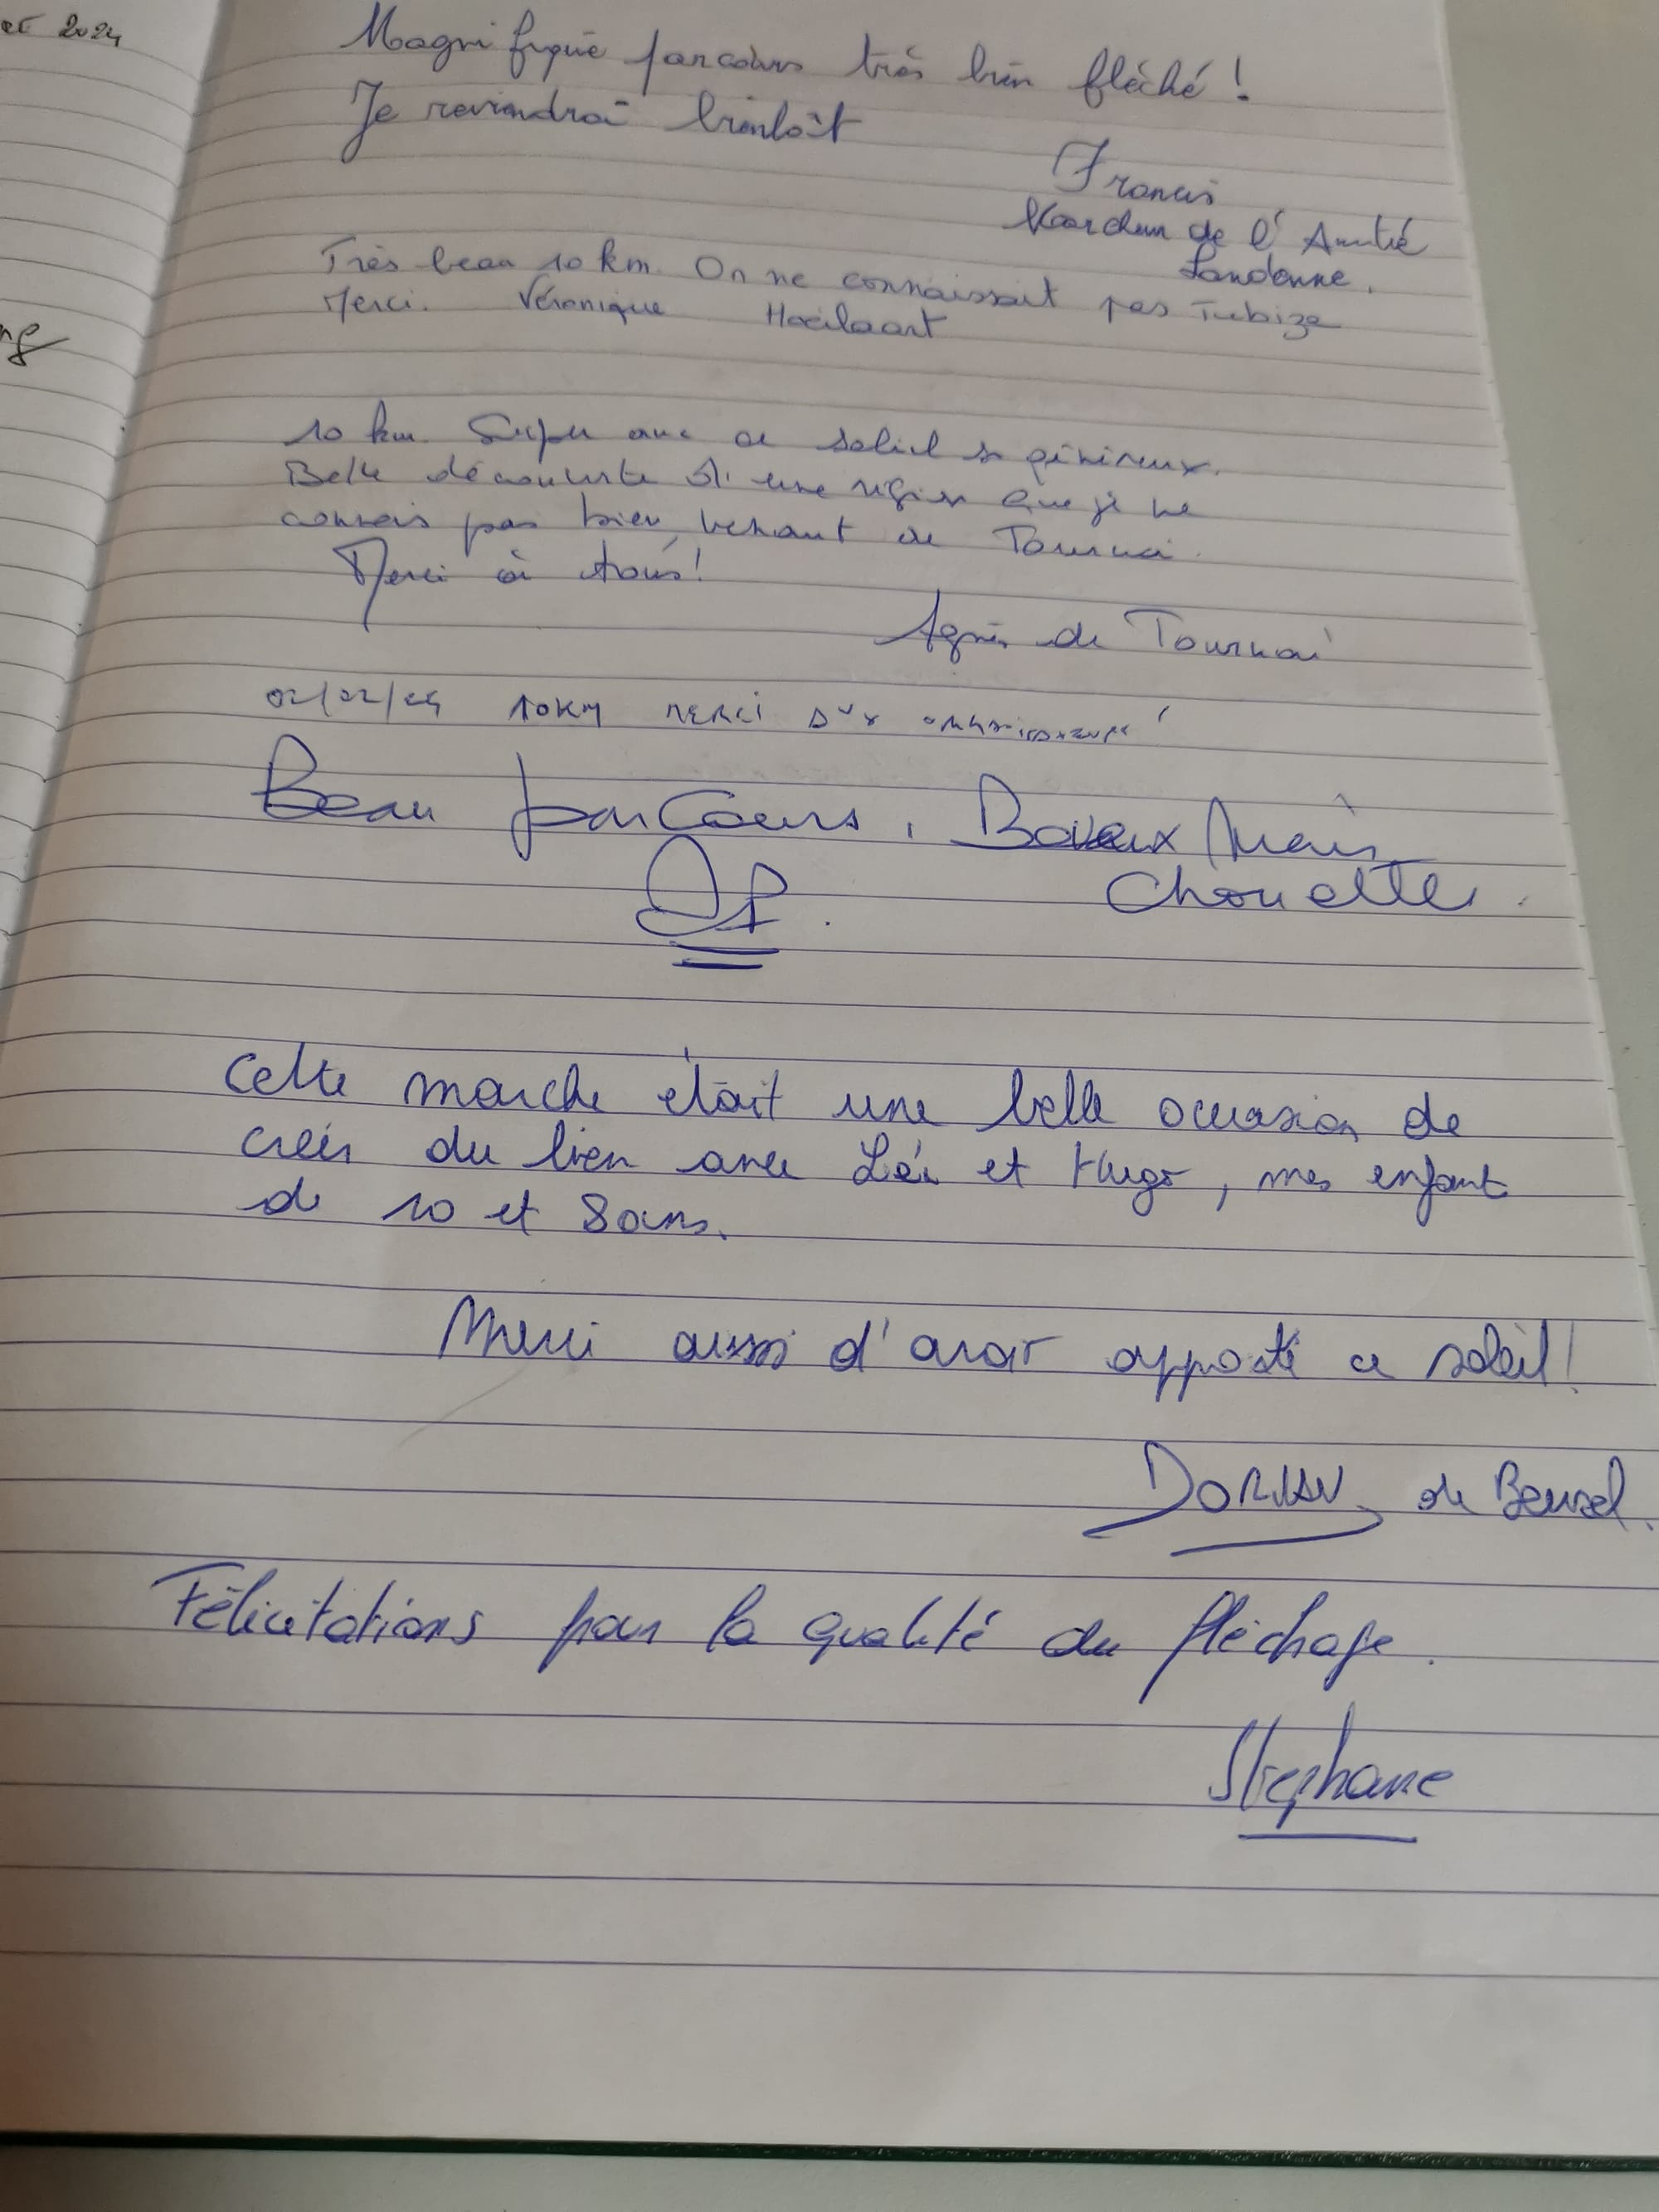 2024
Magnifique parcours très bien fléché !
Je reviendrai bientôt
Francis
Marcheur de l'Amitié
Landenne.
Très beau 10 km. On ne connaissait pas Tubize
Merci. Véronique Hoeilaart
10 km. Super avec ce soleil si généreux.
Belle découverte d'une région que je ne
connais pas bien, venant de Tournai.
Merci à tous!
Agnès de Tournai
10KM MERCI AUX
Beau parcours, Boueux mais
Chouette.
Cette marche était une belle occasion de
créer du lien avec Léa et Hugo, mes enfant
de 10 et 8 ans.
Merci aussi d'avoir apporté ce soleil!
DORIAN de Beersel.
Félicitations pour la qualité du fléchage.
Stéphane